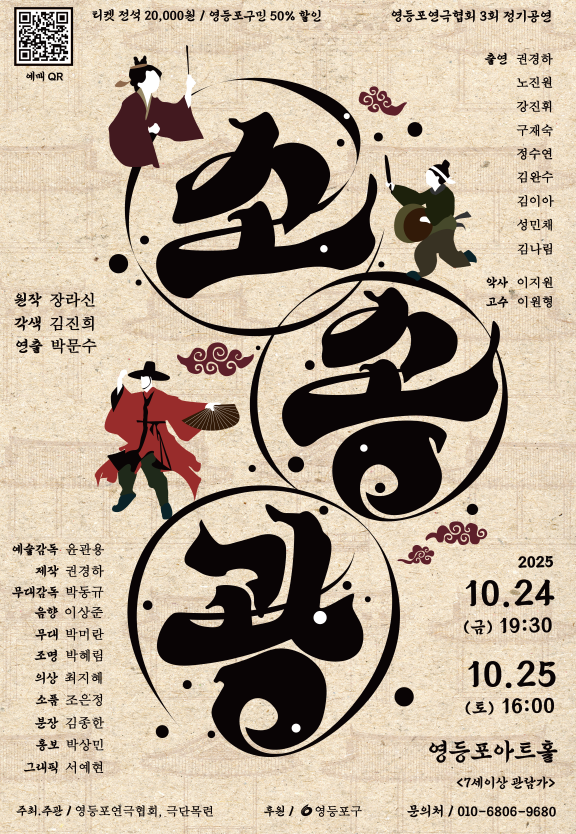 티켓 전석 20,000원 / 영등포구민 50% 할인
영등포연극협회 3회 정기공연
예매 QR
출연 권경하
노진원
강진휘
구재숙
정수연
김완수
김이아
성민재
김나림
악사 이지원
고수 이원형
소
손
광
원작 장라신
각색 김진희
연출 박문수
예술감독 윤관용
제작 권경하
무대감독 박동규
음향 이상준
무대 박미란
조명 박혜림
의상 최지혜
소품 조은정
분장 김종한
홍보 박상민
그래픽 서예현
2025
10.24
(금) 19:30
10.25
(토) 16:00
영등포아트홀
<7세이상 관람가>
주최.주관 / 영등포연극협회, 극단목련
후원 / 영등포구
문의처 / 010-6806-9680